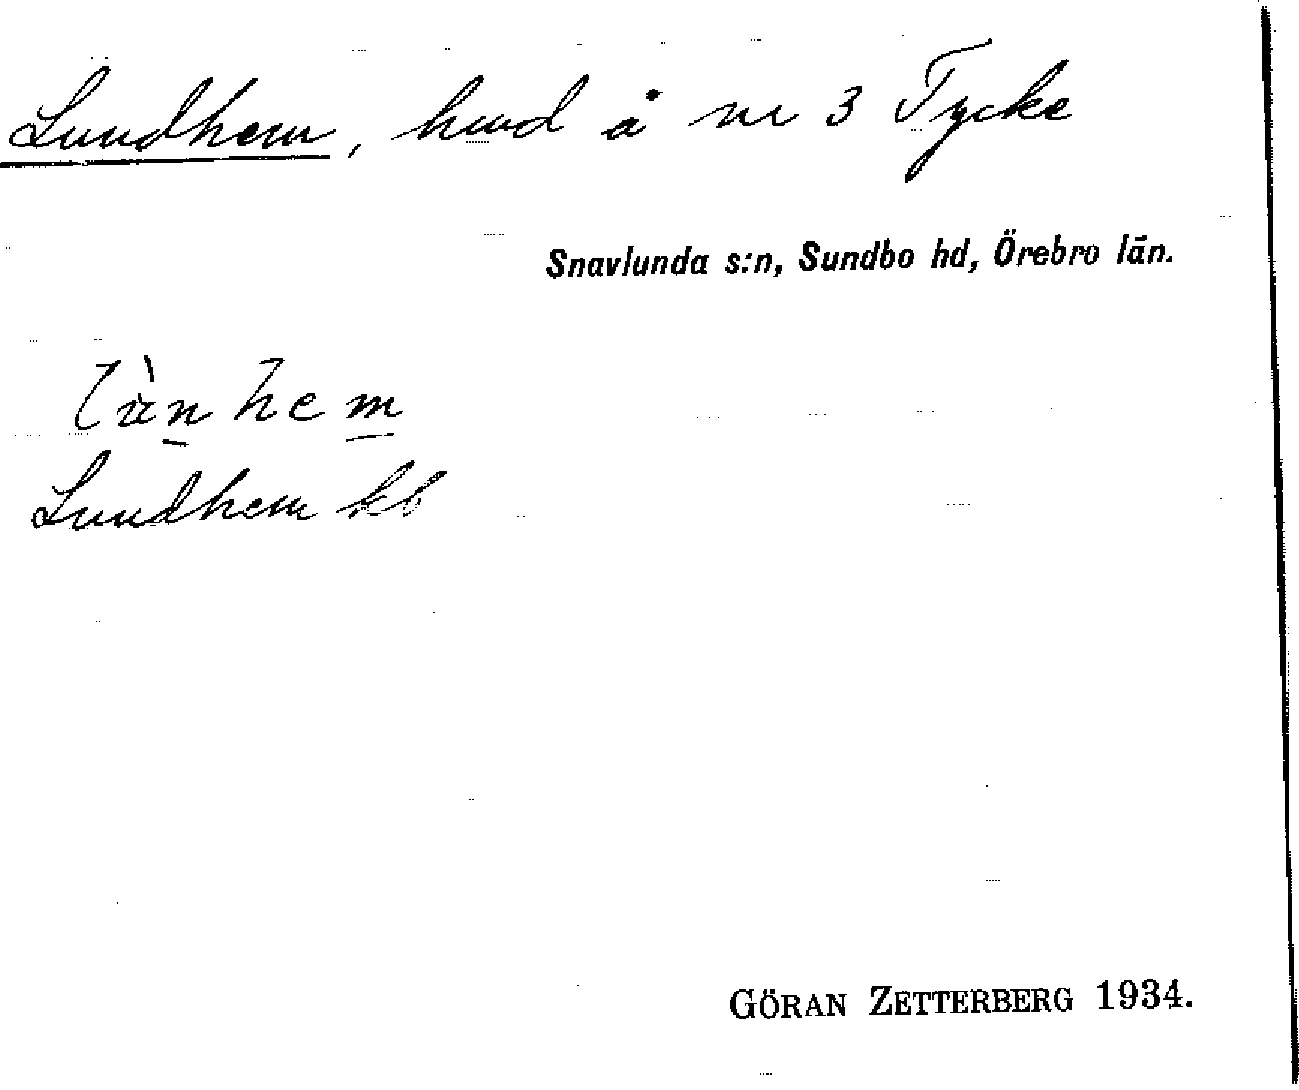 Lundhem, hmd å nr 3 Tycke
Snavlunda s:n, Sundbo hd, Örebro län.
Lundhem kb
GÖRAN ZETTERBERG 1934.